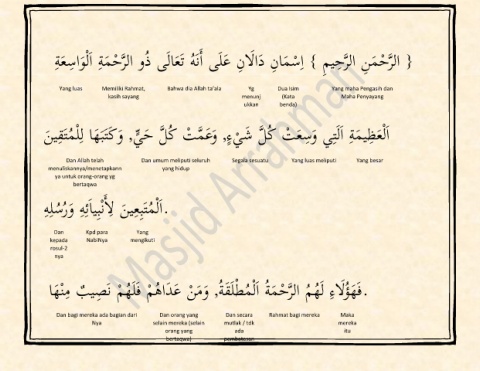 { الرَّحْمَنِ الرَّحِيمِ } اِسْمَانِ دَالَانِ عَلَى أَنَهُ تَعَالَى ذُو الرَّحْمَةِ اَلْوَاسِعَةِ
Yang maha Pengasih dan Maha Penyayang
Dua Isim (Kata benda)
Yg menunjukkan
Bahwa dia Allah ta'ala
Memiliki Rahmat, kasih sayang
Yang luas
اَلْعَظِيمَةِ اَلَتِي وَسِعَتْ كُلَّ شَيْءٍ, وَعَمَّتْ كُلَّ حَيٍّ, وَكَتَبَهَا لِلْمُتَقِينَ
Yang besar
Yang luas meliputi
Segala sesuatu
Dan umum meliputi seluruh yang hidup
Dan Allah telah menuliskannya/menetapkannya untuk orang-orang yg bertaqwa
اَلْمُتَبِعِينَ لِأَنْبِيَائِهِ وَرُسُلِهِ.
Yang mengikuti
Kpd para NabiNya
Dan kepada rosul-2 nya
فَهَؤُلَاءِ لَهُمُ الرَّحْمَةُ اَلْمُطْلَقَةُ, وَمَنْ عَدَاهُمْ فَلَهُمْ نَصِيبٌ مِنْهَا.
Maka mereka itu
Rahmat bagi mereka
Dan secara mutlak / tdk ada
Dan orang yang selain mereka (selain orang yang bertaqwa)
Dan bagi mereka ada bagian dari Nya
Masjid Arrahman